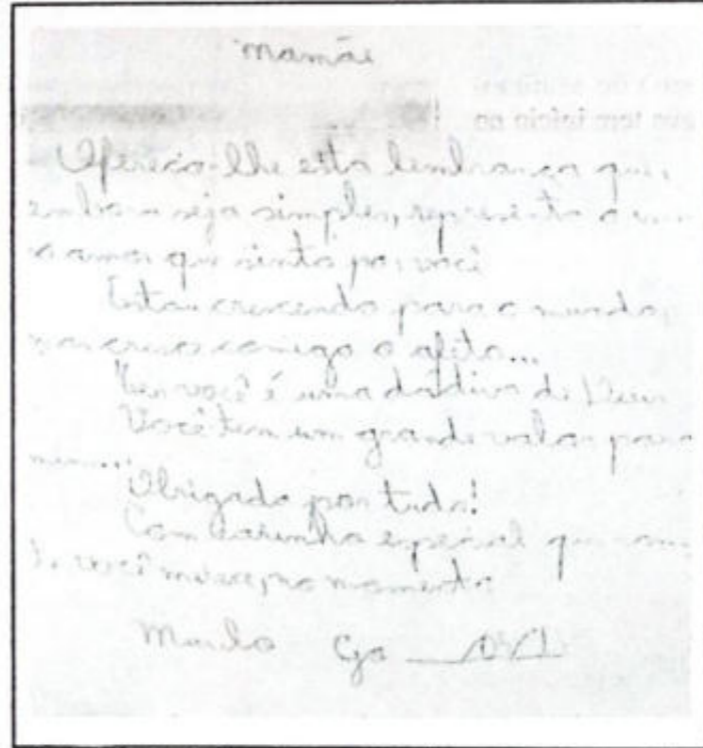 mamãe
Ofereço-lhe esta lembrança que,
embora seja simples, representa o
o amor que sinto por você
Estou crescendo para o mundo,
mas cresce comigo o afeto...
Ter você é uma dádiva de Deus
Você tem um grande valor para
mim...
Obrigado por tudo!
Com carinho especial que
você merece, no momento